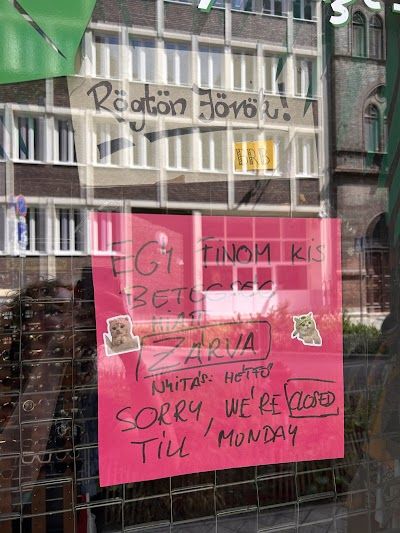 Rögtön Jövök!
EGY FINOM KIS
BETEGSÉG
MIATT
ZÁRVA
NYITÁS: HÉTFŐ
SORRY, WE'RE CLOSED
TILL MONDAY